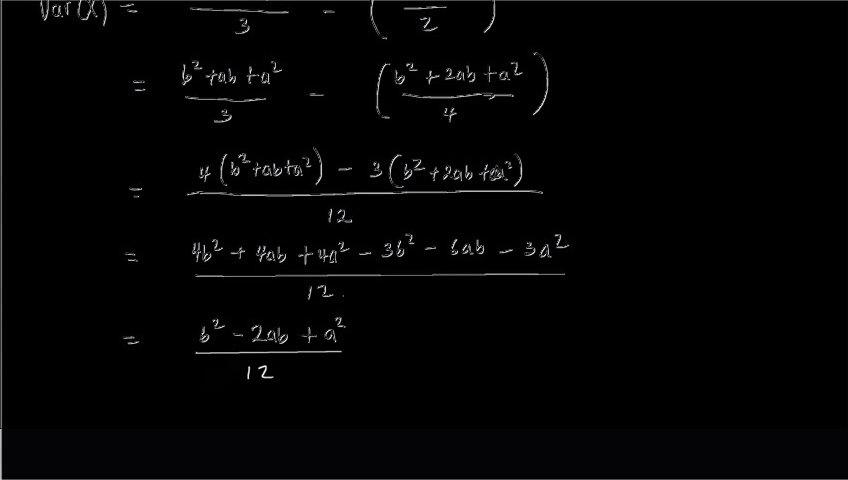 Var(X) = / 3 - ( / 2 )
= (b² + ab + a²) / 3 - ((b² + 2ab + a²) / 4)
= (4(b² + ab + a²) - 3(b² + 2ab + a²)) / 12
= (4b² + 4ab + 4a² - 3b² - 6ab - 3a²) / 12.
= (b² - 2ab + a²) / 12